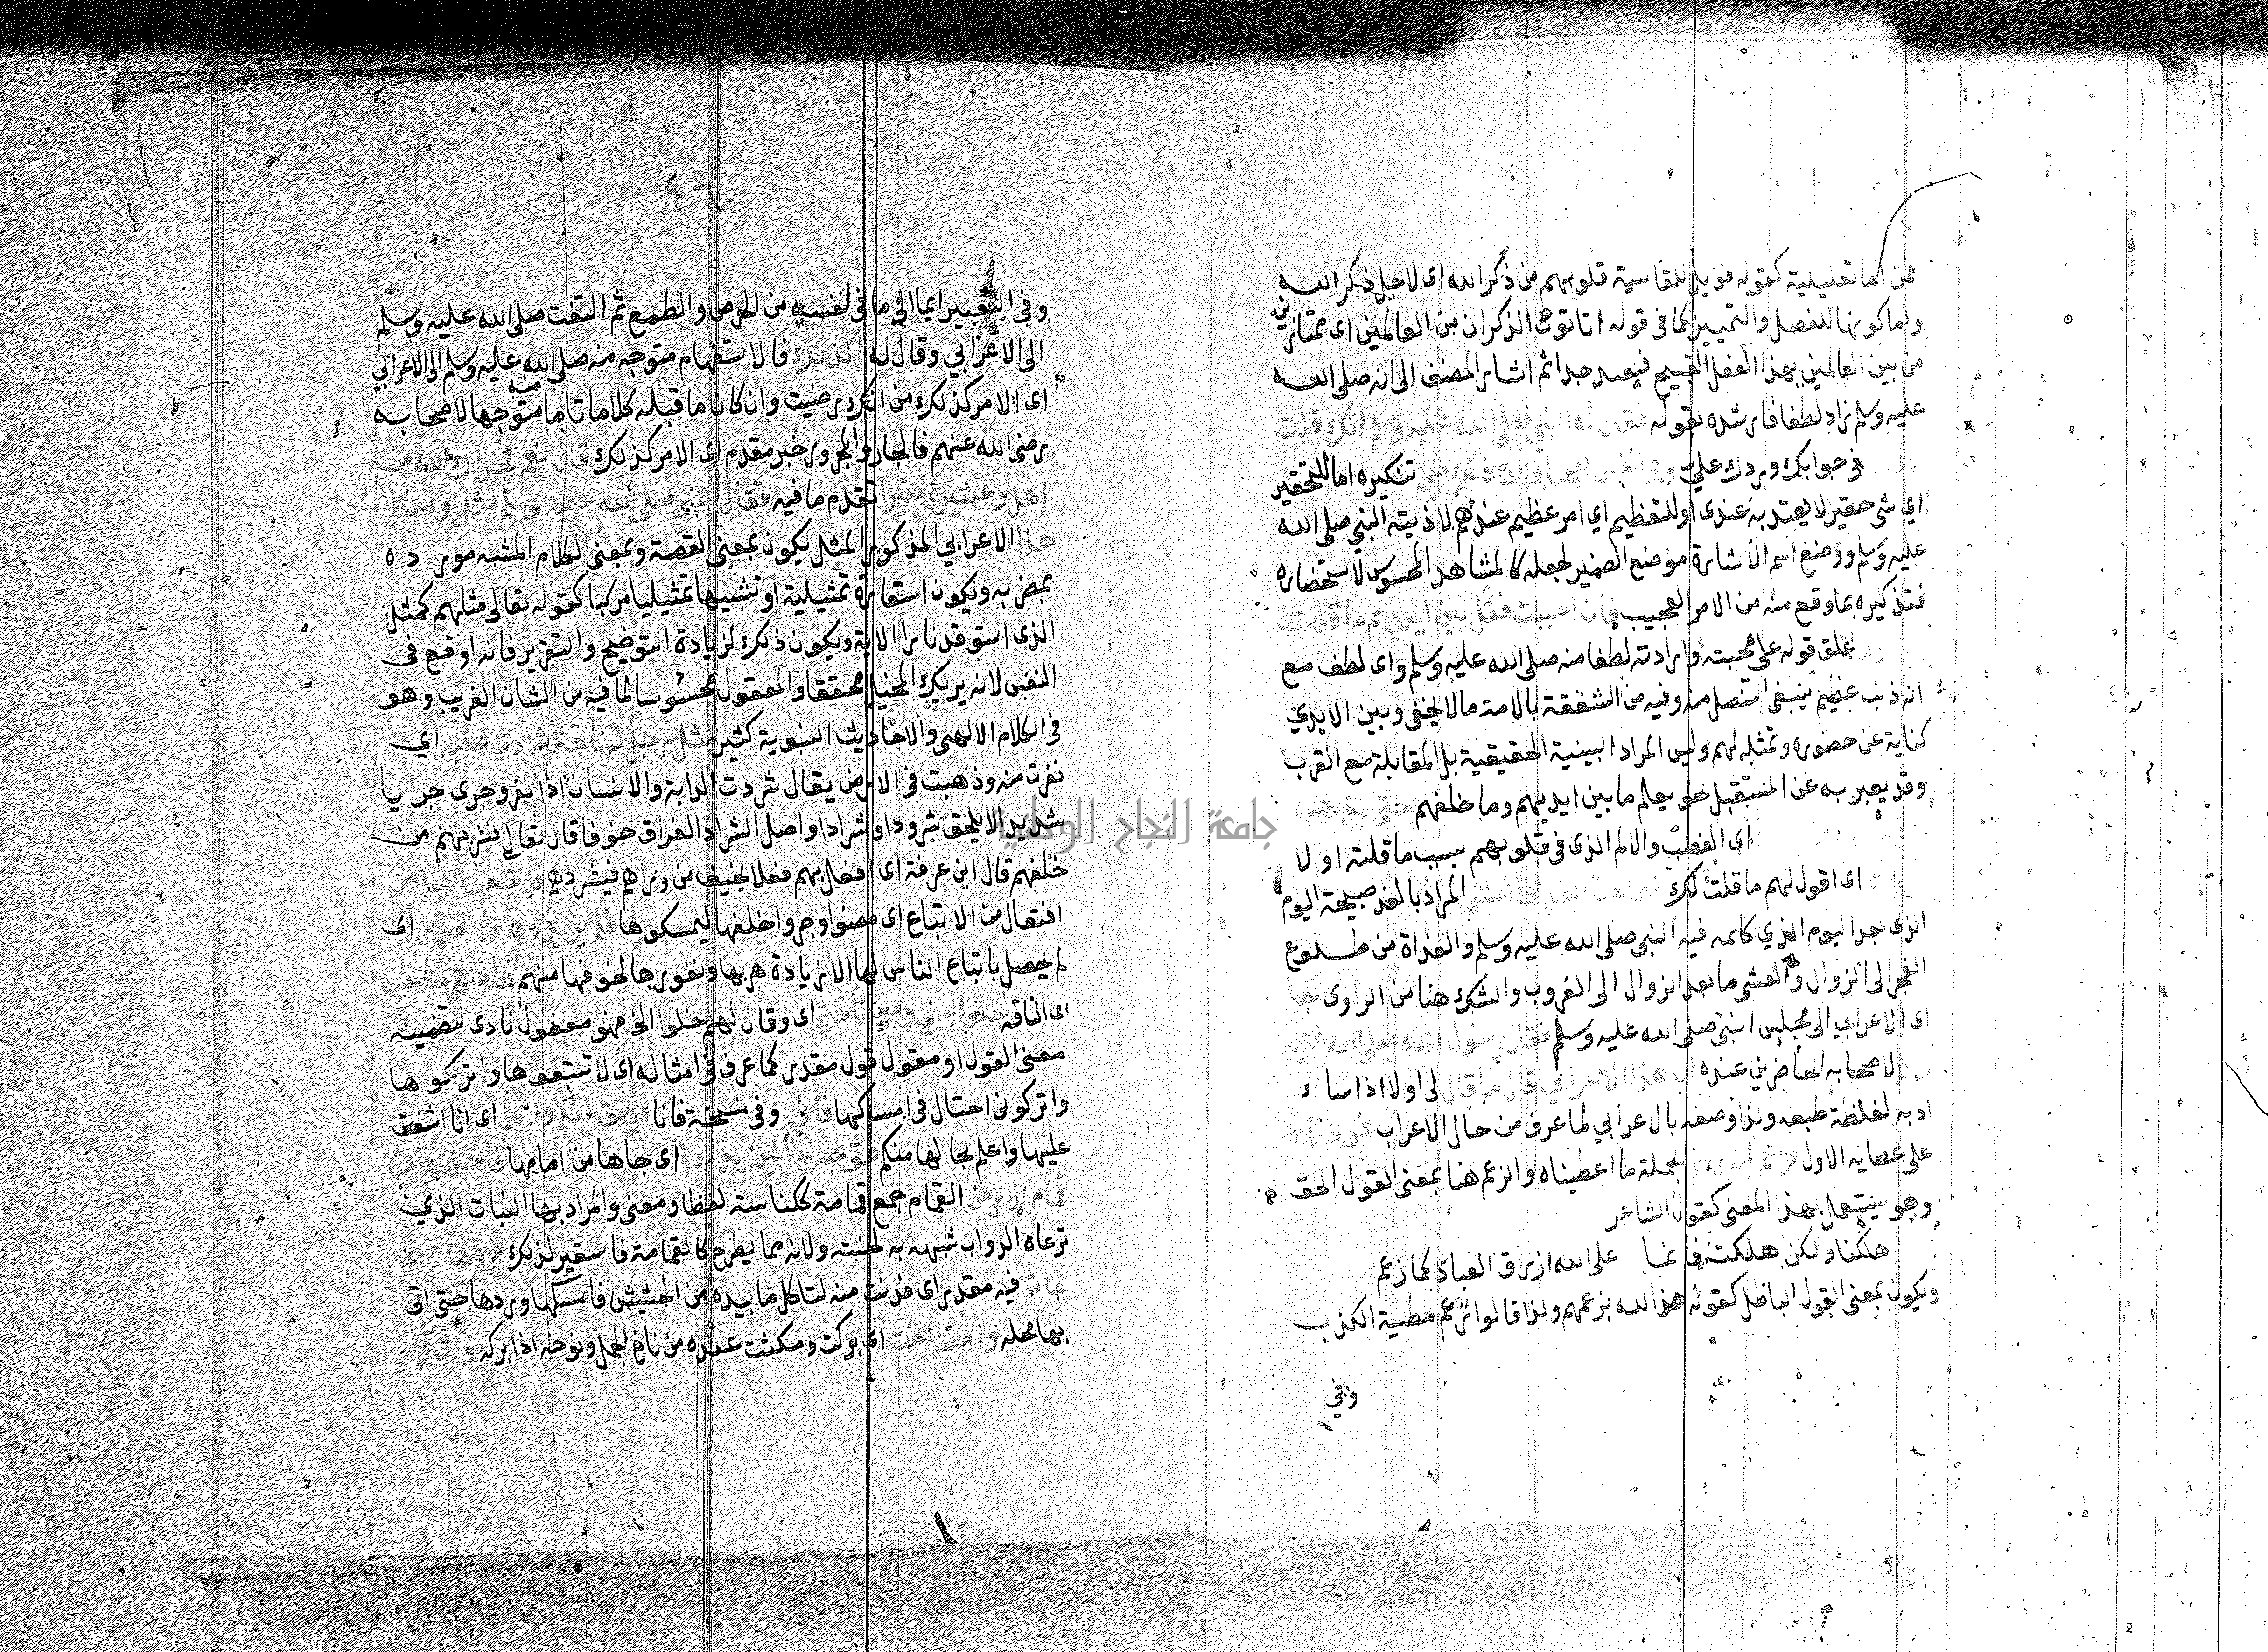 فمن اما تعليلية كقوله فويل للقاسية قلوبهم من ذكر الله اى لاجل ذكر الله
واما كونها للفصل والتمييز كما فى قوله اتاتون الذكران من العالمين اى ممتازين
من بين العالمين بهذا الفعل القبيح فبعيد جدا ثم اشار المصنف الى انه صلى الله
عليه وسلم زاد لطفا فارشده بقوله فقال له النبي صلى الله عليه وسلم انك قلت
فى جوابك وردك علي وفى انفس اصحابى من ذلك شى تنكيره اما للتحقير
اي شى حقير لا يعتد به عندى او للتعظيم اي امر عظيم عندهم لاذيته النبي صلى الله
عليه وسلم ووضع اسم الاشارة موضع الضمير لجعله كالمشاهد المحسوس لاستحضاره
فتذكيره بما وقع منه من الامر العجيب فان احببت فقل بين ايديهم ما قلت
علق قوله على محبته وارادته لطفا منه صلى الله عليه وسلم واى لطف مع
انه ذنب عظيم ينبغى التنصل منه وفيه من الشفقة بالامة ما لا يخفى وبين الايدي
كناية عن حضوره وتمثله لهم وليس المراد البينية الحقيقية بل المقابلة مع القرب
وقد يعبر به عن المستقبل نحو يعلم ما بين ايديهم وما خلفهم حتى يذهب
اى الغضب والالم الذى فى قلوبهم بسبب ما قلته اولا
اى اقول لهم ما قلت لك المراد بالغد صبيحة اليوم
الذى بعد اليوم الذي كلمه فيه النبى صلى الله عليه وسلم والغداة من طلوع
الفجر الى الزوال والعشى ما بعد الزوال الى الغروب والشك هنا من الراوى جا
اى الاعرابي الى مجلس النبي صلى الله عليه وسلم فقال رسول الله صلى الله عليه
لاصحابه الحاضرين عنده ان هذا الاعرابي قال ما قال لى اولا اذ اساء
ادبه لغلظة طبعه ولذا وصفه بالاعرابي لما عرف من حال الاعراب فزدناه
على عطايه الاول فزعم لجملة ما اعطيناه والزعم هنا بمعنى القول الحق
وهو يستعمل بهذا المعنى كقول الشاعر
هلكنا ولكن هلكت فانما على الله ارزاق العباد كما زعم
ويكون بمعنى القول الباطل كقوله هذا لله بزعمهم ولذا قالوا زعم مطية الكذب
وفي
٤٦
وفى التعبير ايما الى ما فى نفسه من الحرص والطمع ثم التفت صلى الله عليه وسلم
الى الاعرابي وقال له اكذلك فالاستفهام متوجه منه صلى الله عليه وسلم الى الاعرابي
اى الامر كذلك من انك رضيت وان كان ما قبله كلاما تاما متوجها لاصحابه
رضى الله عنهم فالجار والمجرور خبر مقدم اى الامر كذلك قال نعم فجزاك الله من
اهل وعشيرة خيرا تقدم ما فيه فقال النبى صلى الله عليه وسلم مثلى ومثل
هذا الاعرابي المذكور المثل يكون بمعنى القصة وبمعنى الكلام المشبه مورده
بمضربه ويكون استعارة تمثيلية او تشبيها تمثيليا مركبا كقوله تعالى مثلهم كمثل
الذى استوقد نارا الاية ويكون ذلك لزيادة التوضيح والتقرير فانه اوقع فى
النفس لانه يريك المخيل محققا والمعقول محسوسا لما فيه من الشان الغريب وهو
فى الكلام الالهى والاحاديث النبوية كثير مثل رجل له ناقة شردت عليه اي
نفرت منه وذهبت فى الارض يقال شردت الدابة والانسان اذا نفر وجرى جريا
شديدا لا يلحق شرودا وشرادا واصل الشراد الفراق خوفا قال تعالى فشرد بهم من
خلفهم قال ابن عرفة اى افعل بهم فعلا يخيف من وراهم فيشردهم فاتبعها الناس
افتعال من الاتباع اى مضوا وجروا خلفها ليمسكوها فلم يزيدوها الا نفورا اى
لم يحصل باتباع الناس لها الا زيادة هربها ونفورها لخوفها منهم فناداهم صاحبها
اى الناقه خلوا بيني وبين ناقتى اى وقال لهم خلوا الخ فهو مفعول نادى لتضمينه
معنى القول او مقول قول مقدر كما عرف فى امثاله اى لا تتبعوها واتركوها
واتركونى احتال فى امساكها فاني وفى نسخة فانا ارفق منكم واعلم اى انا اشفق
عليها واعلم بحالها منكم فتوجه لها بين يديها اى جاها من امامها فاخذ لها من
قمام الارض القمام جمع قمامة ككناسة لفظا ومعنى والمراد بها النبات الذي
ترعاه الدواب شبهه به لخسته ولانه مما يطرح كالقمامة فاستعير لذلك فردها حتى
جات فيه مقدر اى فدنت منه لتاكل ما بيده من الحشيش فامسكها وردها حتى اتى
بها محله واستناخت اى بركت ومكثت عنده من ناخ الجمل ونوخه اذا بركه وشد